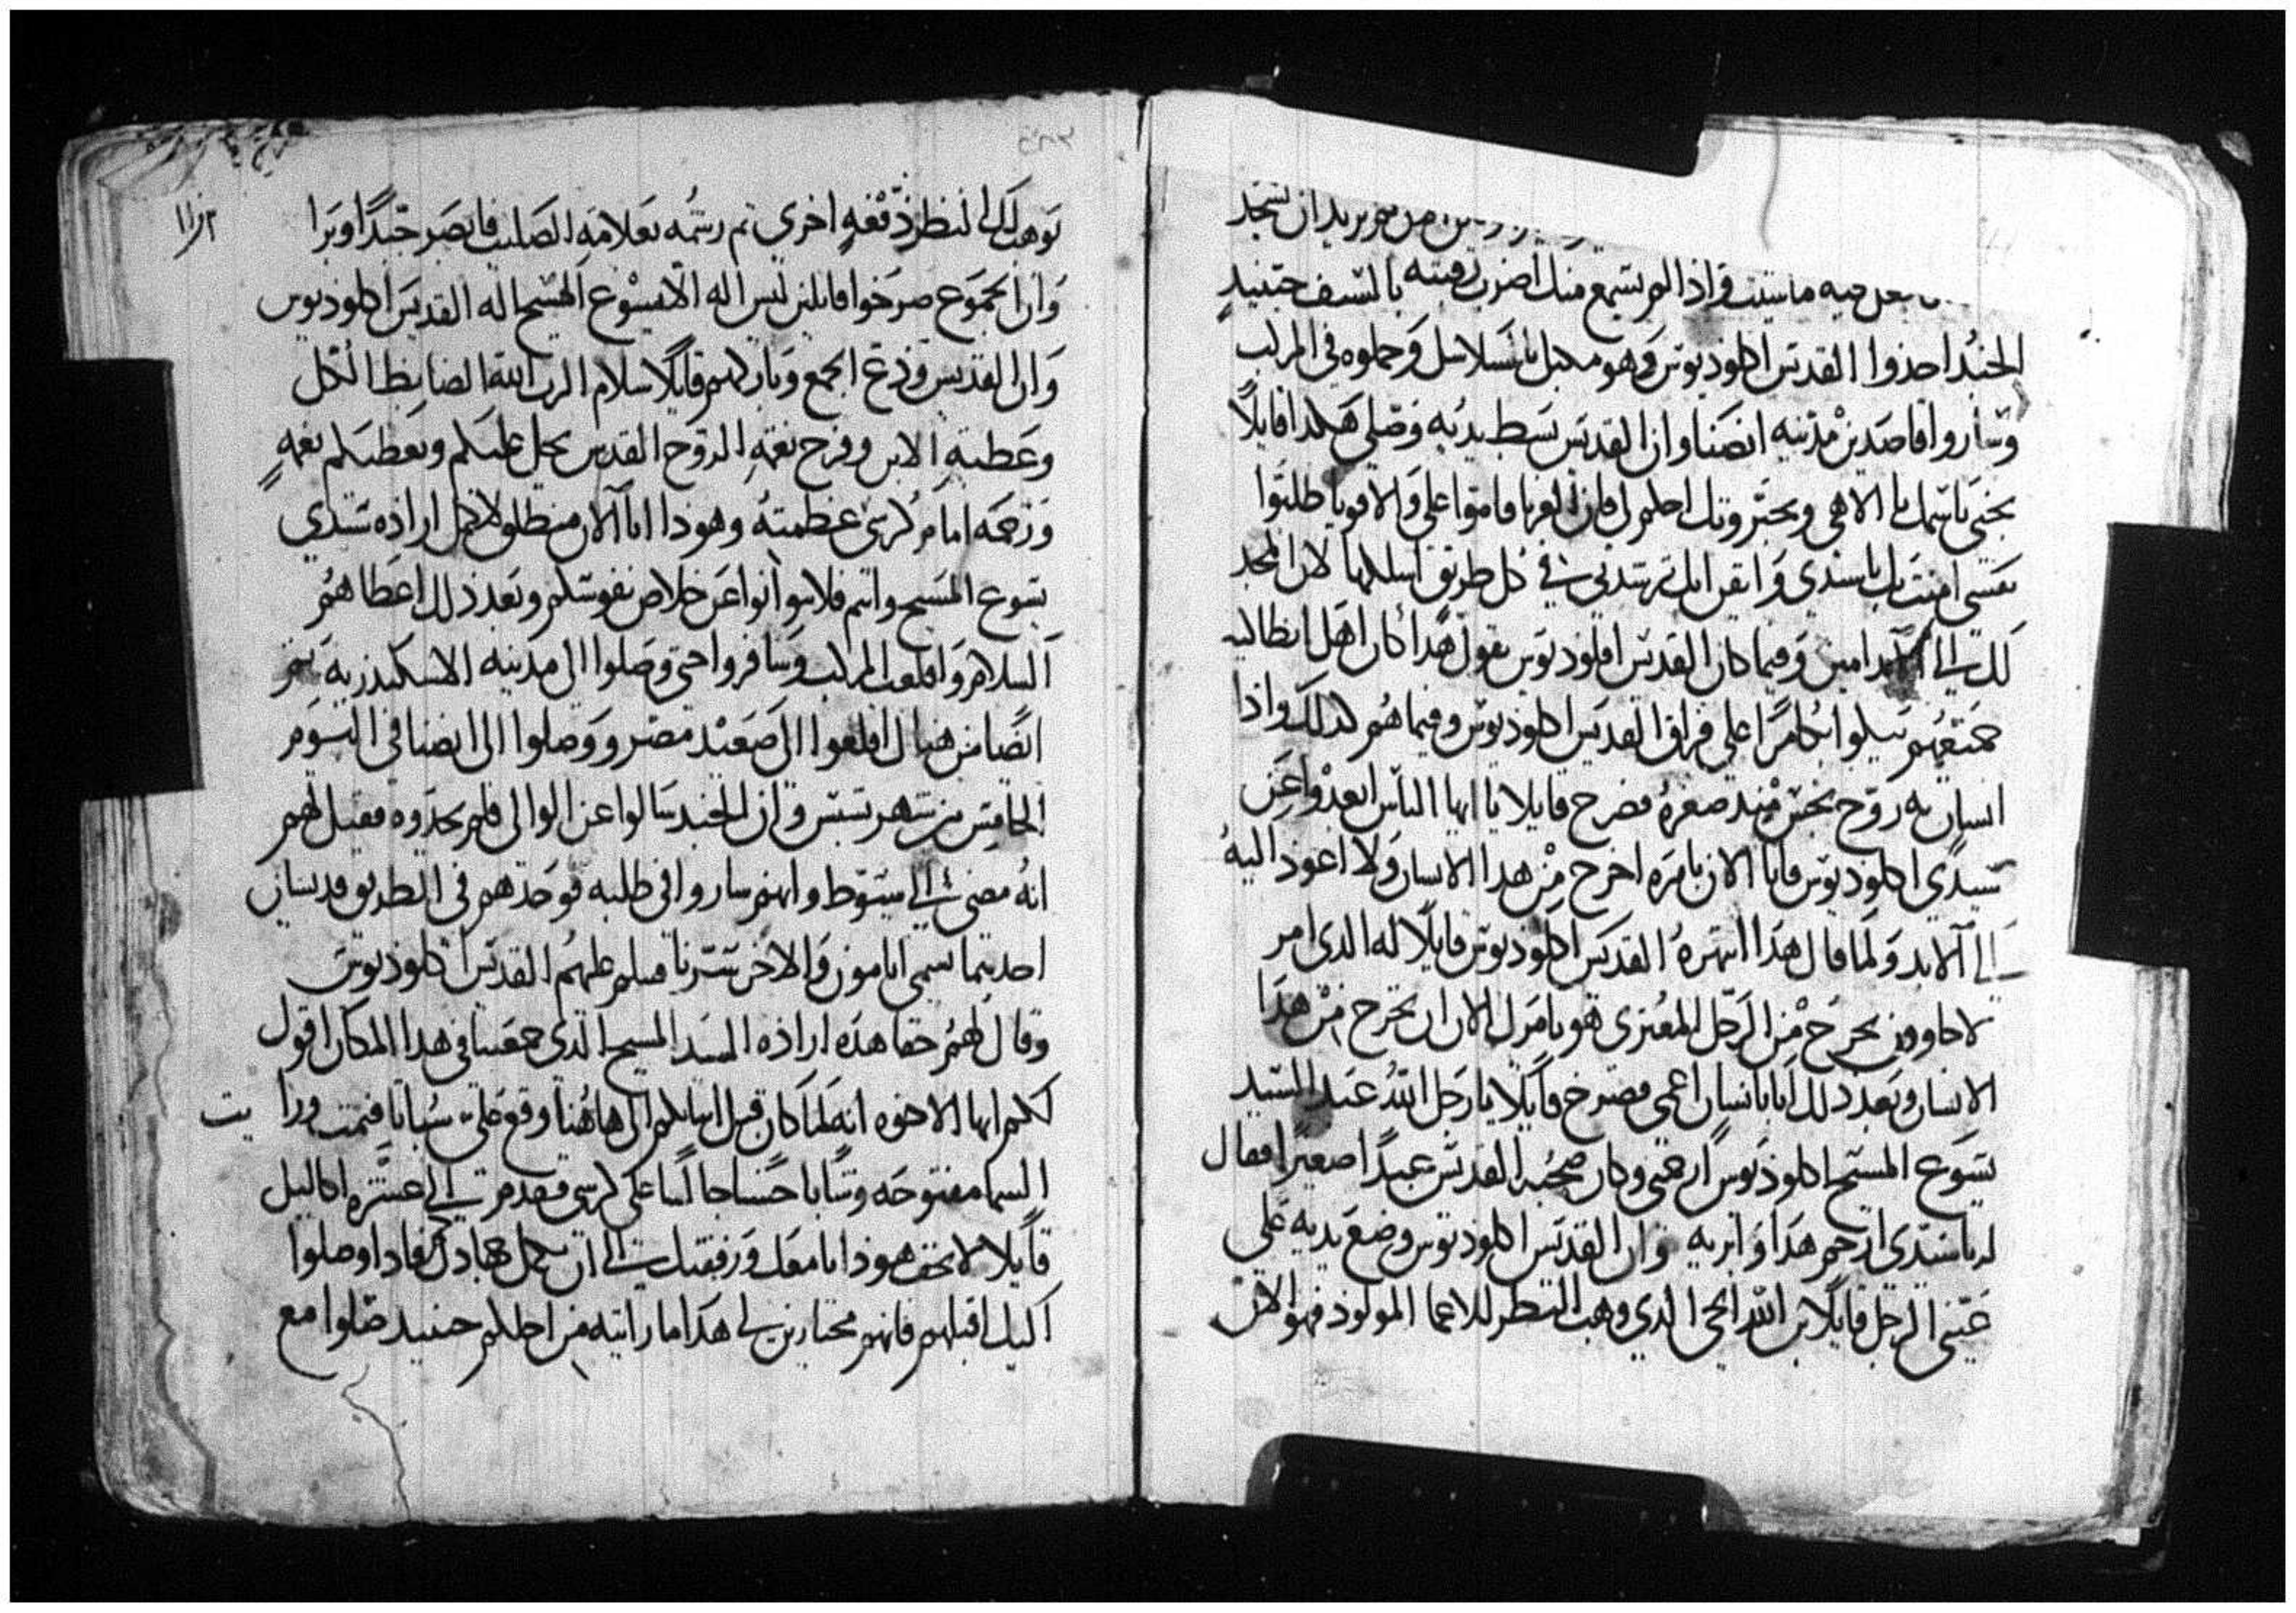 يريد ان تسجد
ما شيت واذا لم تسمع منك اضرب رقبته بالسيف حينيد
الجند احذوا القديس اكلوديوس وهو مكبل بالسلاسل وحملوه في المركب
وساروا قاصدين مدينه انصنا وان القديس بسط يديه وصلى هكدا قايلا
نجني باسمك يا الاهي وبجبروتك احكم لي فان الغربا قاموا علي والاقويا طلبوا
نفسي امنت بك يا سيدي واتقن انك ترشدني في كل طريق اسلكها لان المجد
لك الي الابد امين وفيما كان القديس اقلوديوس يقول هدا كان اهل انطاكيه
جميعهم يبكوا بكا مرا على فراق القديس اكلوديوس وفيما هم كدلك واذا
انسان به روح نجس مند صغره فصرخ قايلا يا ايها الناس ابعدوا عن
سيدي اكلوديوس فانا الان يامره اخرج من هدا الانسان ولا اعود اليه
الي الابد ولما قال هدا انتهره القديس اكلوديوس قايلا له الدي امر
لاجاوون يخرج من الرجل المعتري هو يامرك الان ان تخرج من هدا
الانسان وبعد دلك اتا انسان اعمى فصرخ قايلا يا رجل الله عبد السيد
يسوع المسيح اكلوديوس ارحمني وكان صحبه القديس عبدا صغيرا فقال
له يا سيدي ارحم هدا وابريه وان القديس اكلوديوس وضع يديه على
عيني الرجل قايلا ابن الله الحي الدي وهب النظر للاعما المولود فهو الان
يوهب لك النظر دفعه اخري ثم رشمه بعلامه الصليب فابصر جيدا وبرا
وان الجموع صرخوا قايلين ليس اله الا يسوع المسيح اله القديس اكلوديوس
وان القديس ودع الجمع وباركهم قايلا سلام الرب الضابط الكل
وعطية الابن وفرح نعمة الروح القدس يحل عليكم ويعطيكم نعمه
ورحمه امام كرسي عظمته وهودا انا الان منطلق لاكمل اراده سيدي
يسوع المسيح وانتم فلا تتوانوا عن خلاص نفوسكم وبعد ذلك اعطاهم
السلام واقلعت المركب وسافروا حتى وصلوا الى مدينه الاسكندريه ثم
ايضا من هناك اقلعوا الى صعيد مصر ووصلوا الى انصنا في اليوم
الخامس من شهر وان الجند سالوا عن الوالى فلم يجدوه فقيل لهم
انه مضى الي سيوط وانهم ساروا في طلبه فوجدهم في الطريق قديسان
احديهما يسمى ابامون والاخر سرنا فسلم عليهم القديس اكلوديوس
وقال لهم حقا هده اراده السيد المسيح الدى جمعنا في هدا المكان اقول
لكلم ايها الاخوه انه لما كان قبل اتيانكم الى هاهنا وقع علي سباتا فنمت ورايت
السما مفتوحه وشابا حسنا جالسا على كرسي فقدم الي عشره اكاليل
قايلا لا تخف هودا انا معك ورفقتك الي ان تكمل جهادك فادا وصلوا
اليك اقبلهم فانهم مختارين لي هدا ما رايته من اجلكم حينيد صلوا مع